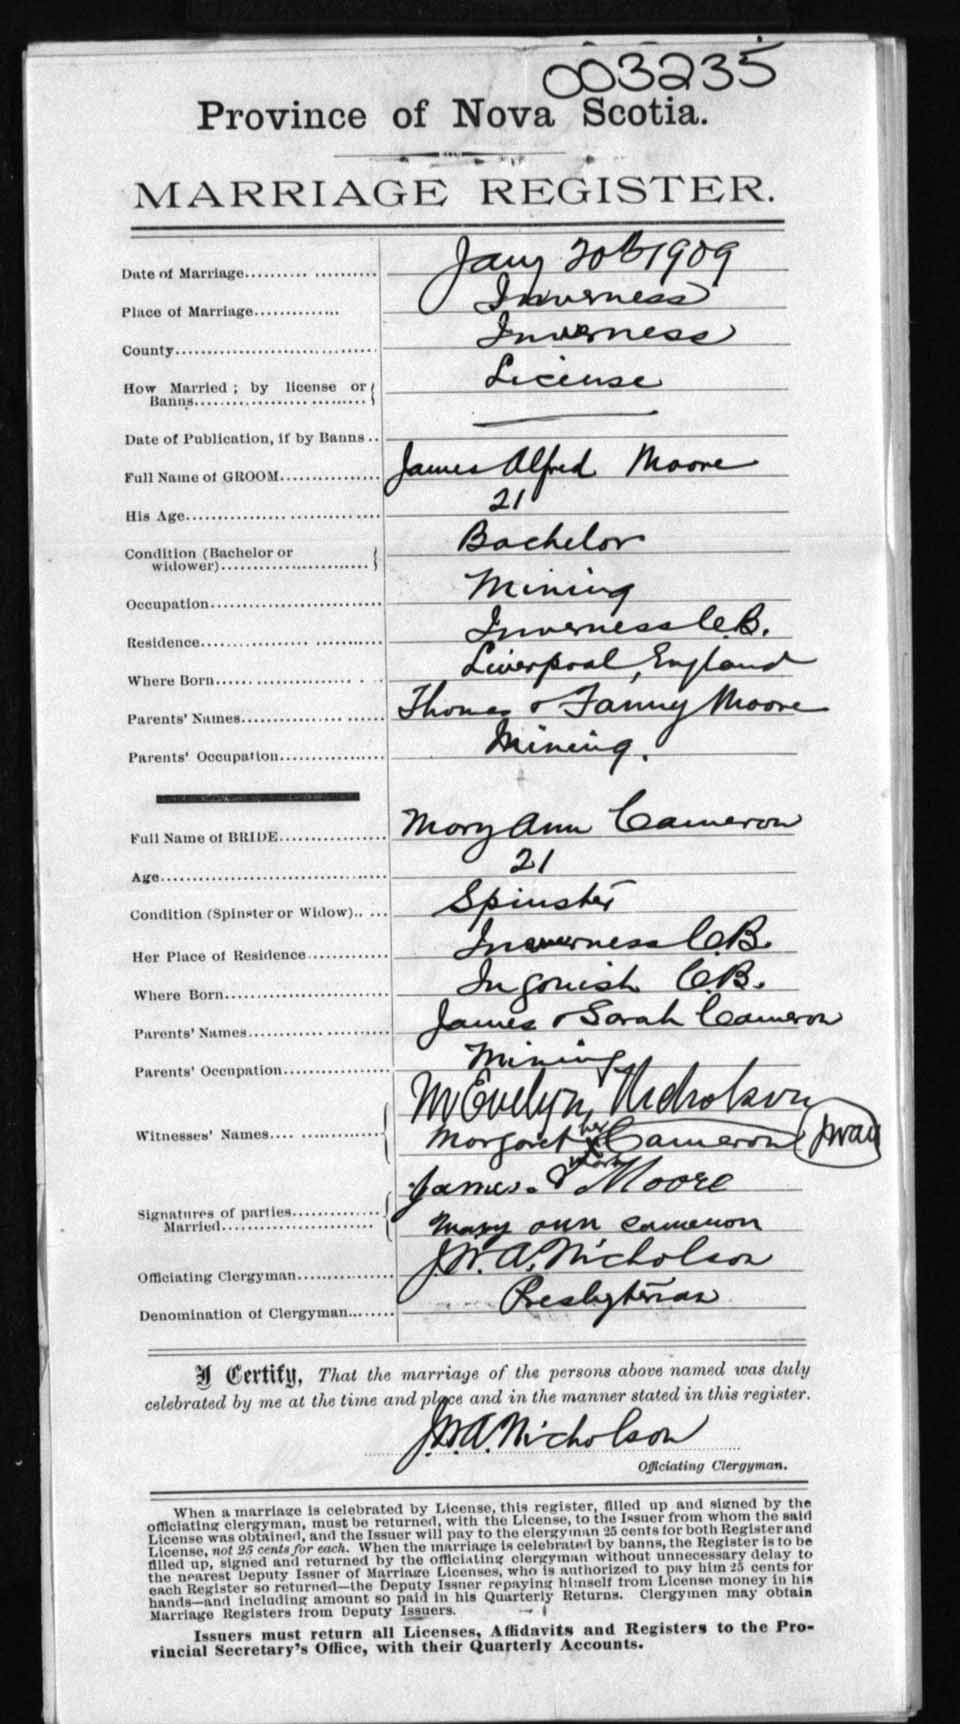 003235
Province of Nova Scotia.
MARRIAGE REGISTER.
Date of Marriage.......... ........... Jany 20th 1909
Place of Marriage............. Inverness
County.............................. Inverness
How Married; by license or License
Banns...........................
Date of Publication, if by Banns ..
Full Name of GROOM............... James Alfred Moore
His Age............................. 21
Condition (Bachelor or Bachelor
widower)..........................
Occupation.......................... Mining
Residence........................... Inverness C.B.
Where Born...................... . . Liverpool, England
Parents' Names...................... Thomas & Fanny Moore
Parents' Occupation................. Mining.
Full Name of BRIDE................ Mary Ann Cameron
Age................................. 21
Condition (Spinster or Widow).. .... Spinster
Her Place of Residence............. Inverness C.B.
Where Born.......................... Ingonish C.B.
Parents' Names...................... James & Sarah Cameron
Parents' Occupation................. Mining
M Evelyn Nicholson
Witnesses' Names.... .............. Margaret her X mark Cameron JWAN
Signatures of parties............. James Moore
Married....................... Mary ann cameron
Officiating Clergyman............... J.W.A. Nicholson
Denomination of Clergyman........ Presbyterian
I Certify, That the marriage of the persons above named was duly
celebrated by me at the time and place and in the manner stated in this register.
J.W.A. Nicholson
Officiating Clergyman.
When a marriage is celebrated by License, this register, filled up and signed by the
officiating clergyman, must be returned, with the License, to the Issuer from whom the said
License was obtained, and the Issuer will pay to the clergyman 25 cents for both Register and
License, not 25 cents for each. When the marriage is celebrated by banns, the Register is to be
filled up, signed and returned by the officiating clergyman without unnecessary delay to
the nearest Deputy Issuer of Marriage Licenses, who is authorized to pay him 25 cents for
each Register so returned—the Deputy Issuer repaying himself from License money in his
hands—and including amount so paid in his Quarterly Returns. Clergymen may obtain
Marriage Registers from Deputy Issuers.
Issuers must return all Licenses, Affidavits and Registers to the Pro-
vincial Secretary's Office, with their Quarterly Accounts.